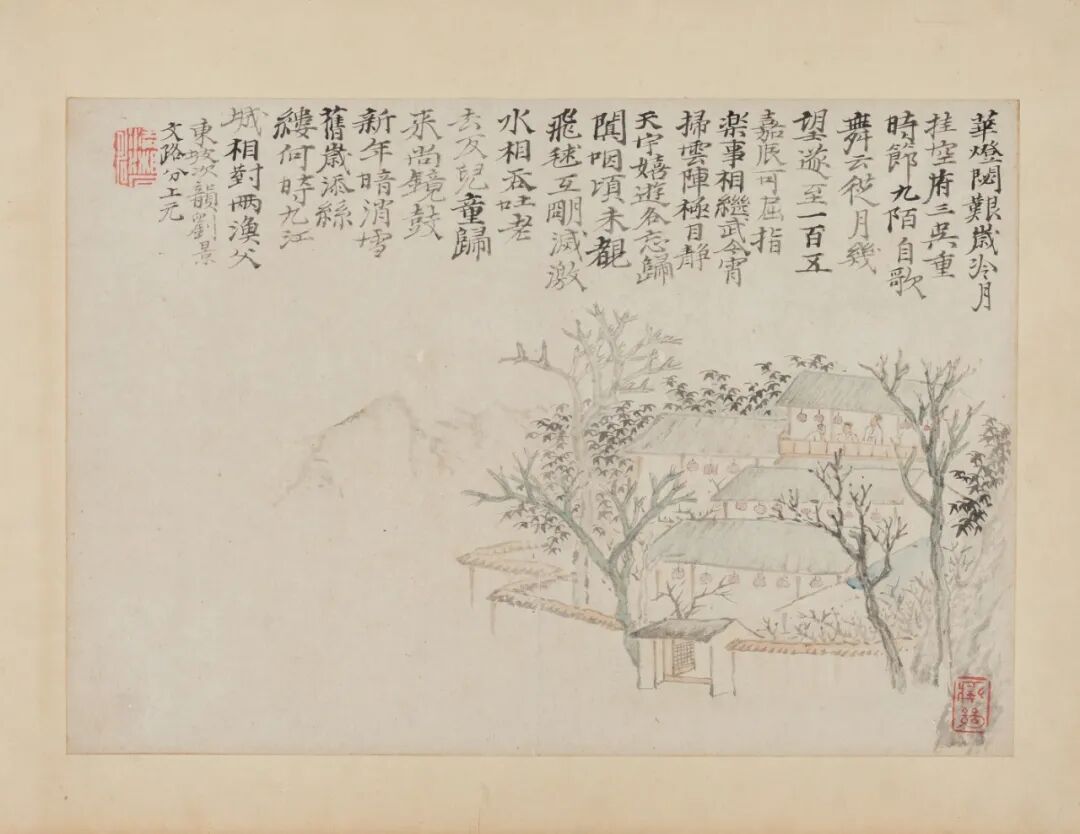 華燈閟艱歲冷月
挂空府三吳重
時節九陌自歌
舞云從月幾
望遂至一百五
嘉辰可屈指
楽事相繼武今宵
掃雲陣極目靜
天宇嬉遊各忘歸
闐咽頃未覩
飛毬互明滅激
水相吞吐老
去反兒童歸
來尚鐃鼓
新年暗消雪
舊歲添絲
縷何時九江
城相對兩漁父
東坡次韻劉景
文路分上元